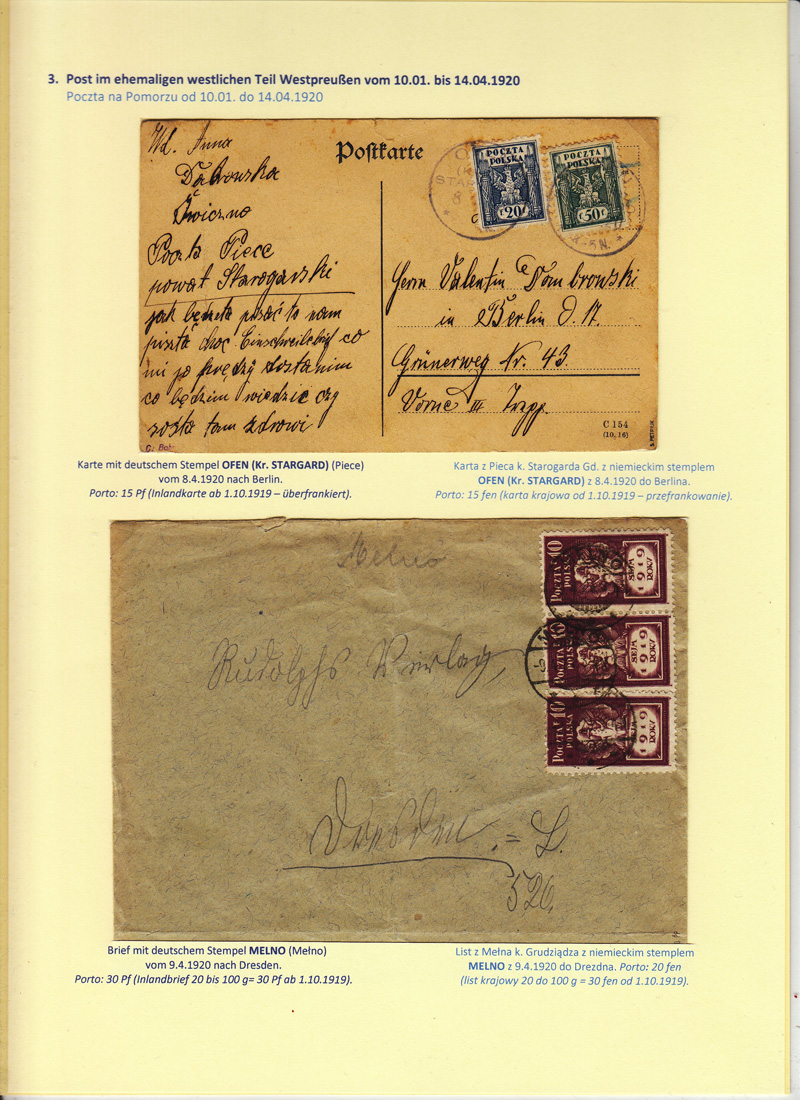 3. Post im ehemaligen westlichen Teil Westpreußen vom 10.01. bis 14.04.1920
Poczta na Pomorzu od 10.01. do 14.04.1920
Wd. Anna
Dąbrowska
Zwiczno
Poczta Piece
powat Starogarski
jak będzeta pisać to nam
piszta choc Einschreiben co
mi po prędzy dostanim
co będzim wiedzić czy
zdrowi
Postkarte
POCZTA
POLSKA
20
POCZTA
POLSKA
50
Herrn Valentin Dombrowski
in Berlin O. 17.
Grünerweg Nr. 43.
Vorne III Trepp.
C 154
(10. 16)
Karte mit deutschem Stempel OFEN (Kr. STARGARD) (Piece)
vom 8.4.1920 nach Berlin.
Porto: 15 Pf (Inlandkarte ab 1.10.1919 – überfrankiert).
Karta z Pieca k. Starogarda Gd. z niemieckim stemplem
OFEN (Kr. STARGARD) z 8.4.1920 do Berlina.
Porto: 15 fen (karta krajowa od 1.10.1919 – przefrankowanie).
Melno
Rudolphs Verlag,
Dresden = L.
520.
10
POCZTA
POLSKA
SEJM
1919
ROKU
10
POCZTA
POLSKA
SEJM
1919
ROKU
10
POCZTA
POLSKA
SEJM
1919
ROKU
Brief mit deutschem Stempel MELNO (Mełno)
vom 9.4.1920 nach Dresden.
Porto: 30 Pf (Inlandbrief 20 bis 100 g= 30 Pf ab 1.10.1919).
List z Mełna k. Grudziądza z niemieckim stemplem
MELNO z 9.4.1920 do Drezdna. Porto: 20 fen
(list krajowy 20 do 100 g = 30 fen od 1.10.1919).